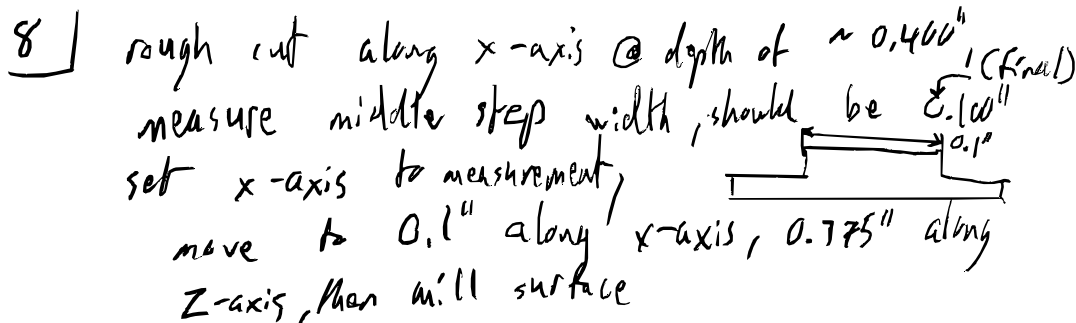 8 rough cut along x-axis @ depth of ~ 0.400"
(final)
measure middle step width, should be 0.100"
0.1"
set x-axis to measurement,
move to 0.1" along x-axis, 0.375" along
Z-axis, then mill surface